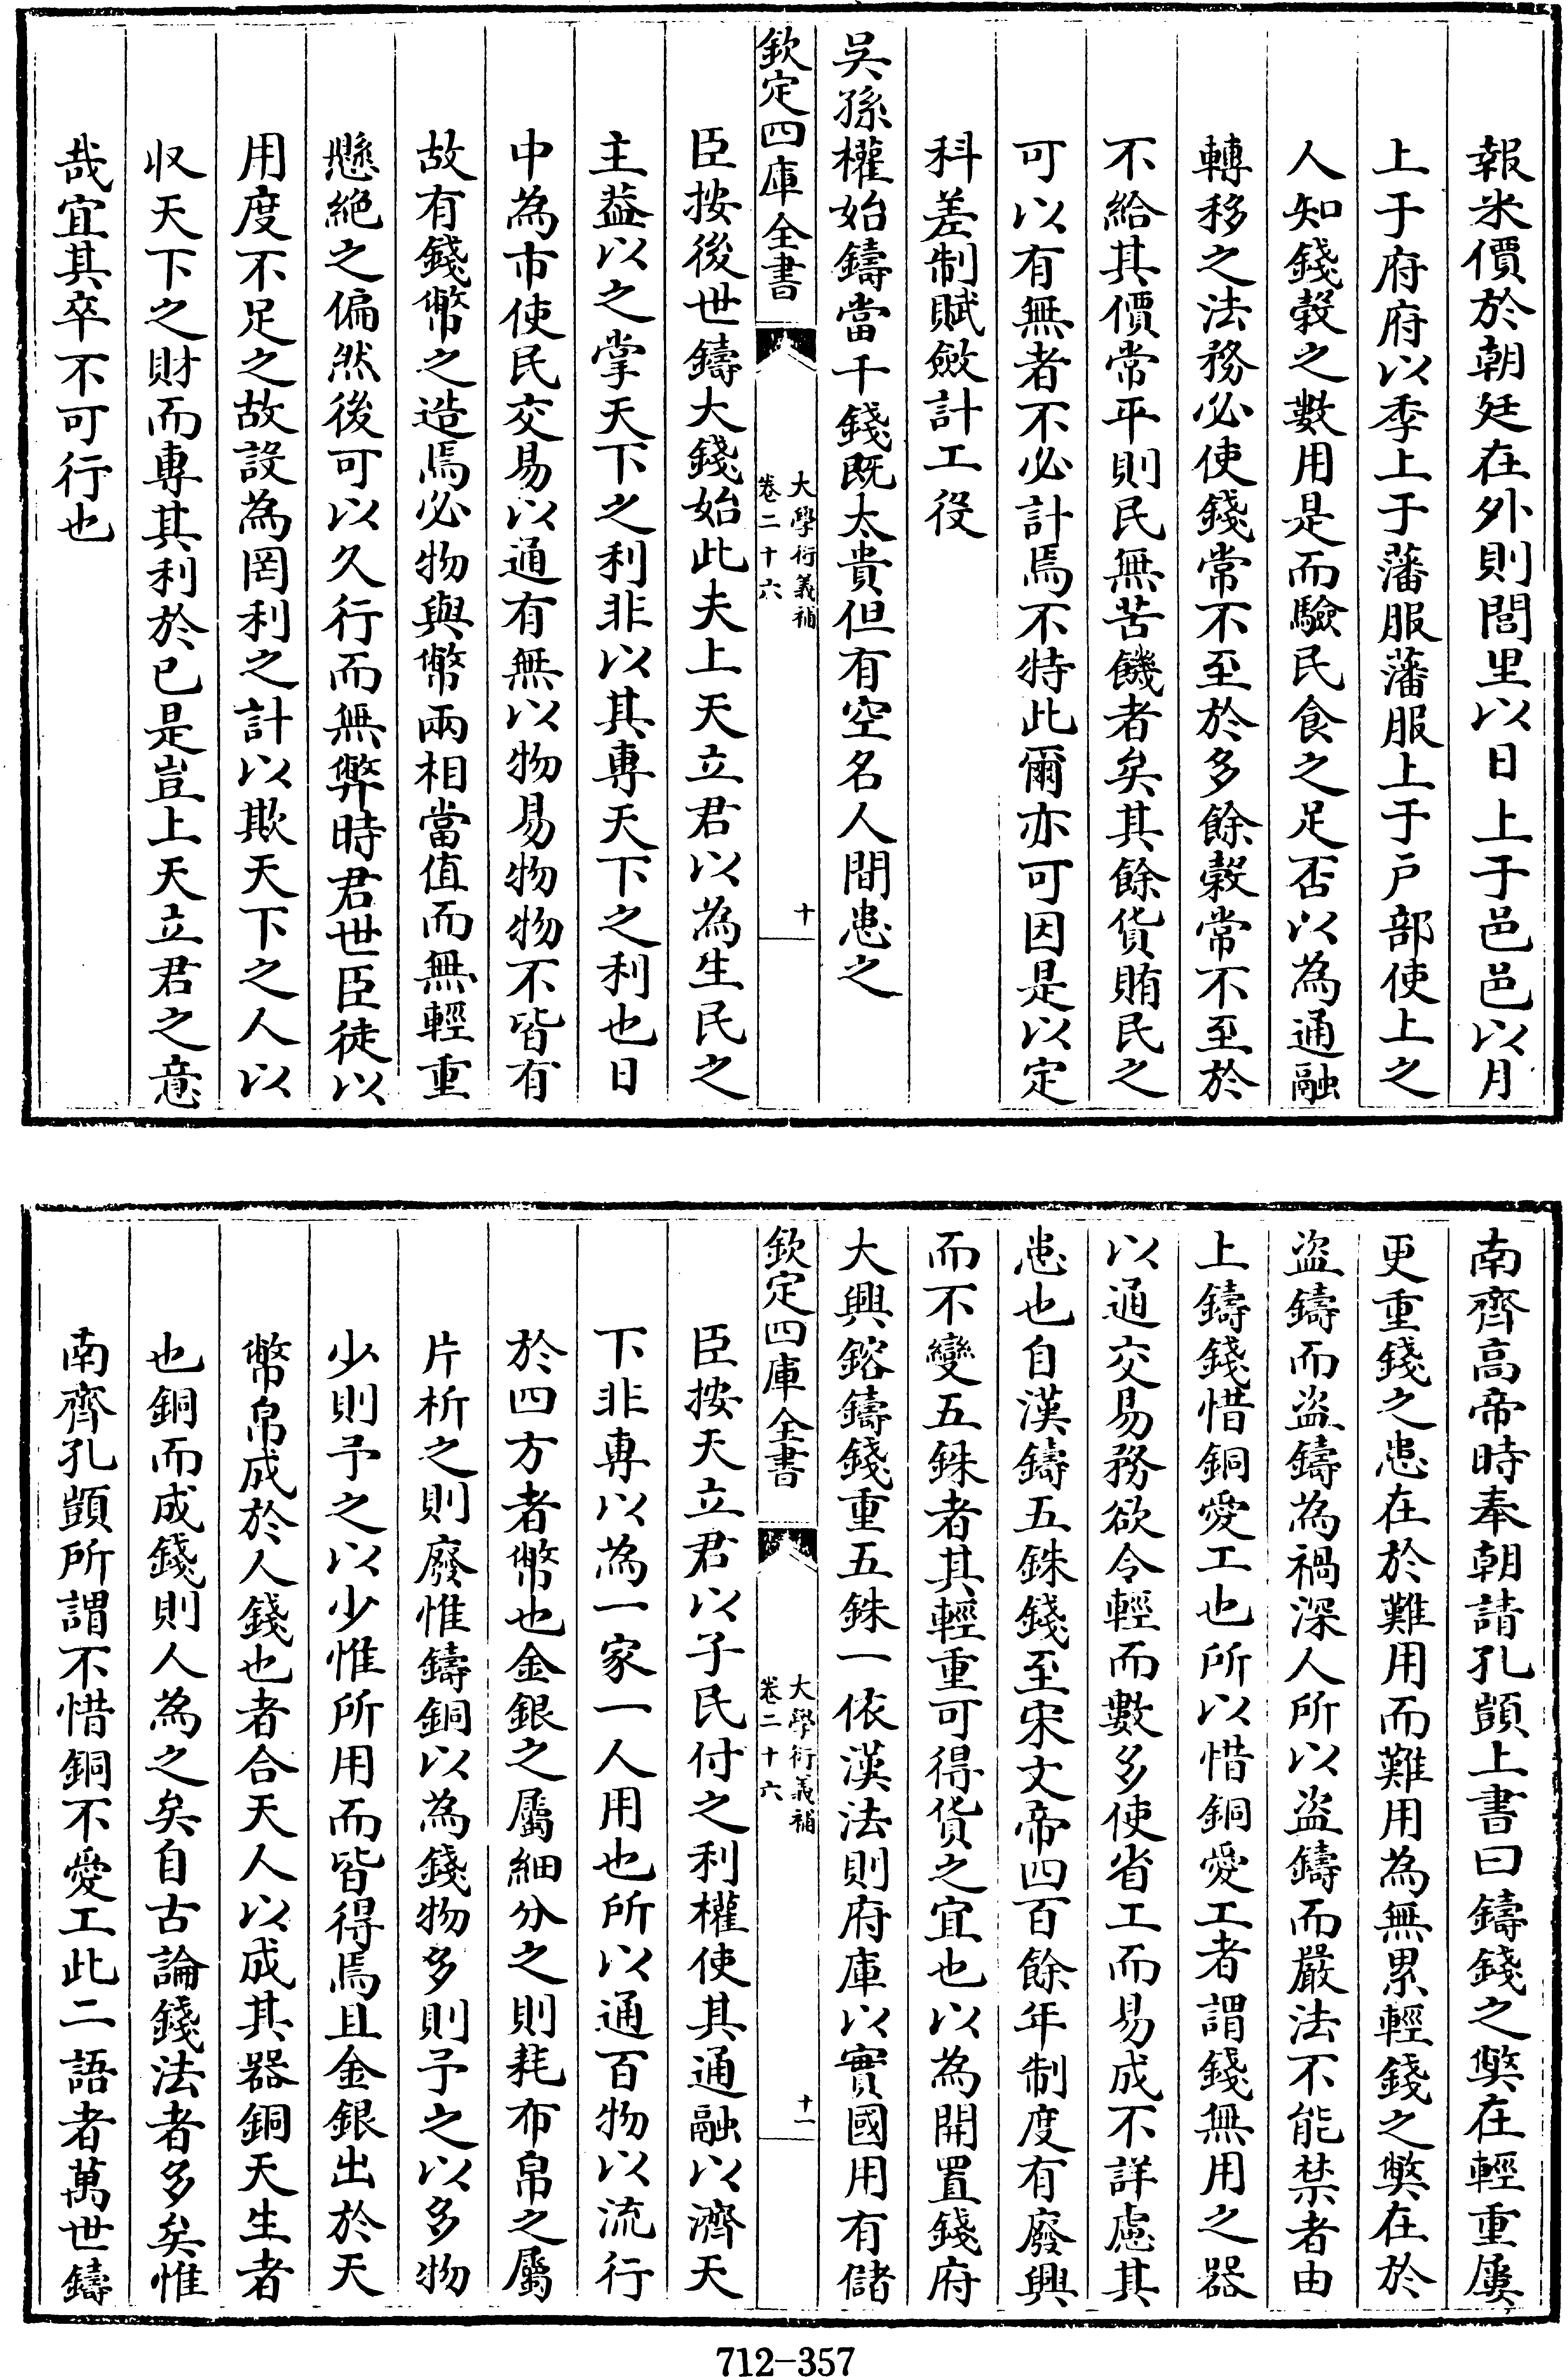 報米價於朝廷在外則閭里以日上于邑邑以月
上于府府以季上于藩服藩服上于户部使上之
人知錢榖之數用是而驗民食之足否以為通融
轉移之法務必使錢常不至於多餘榖常不至於
不給其價常平則民無苦饑者矣其餘貨賄民之
可以有無者不必計焉不特此爾亦可因是以定
科差制賦斂計工役
吳孫權始鑄當千錢既太貴但有空名人間患之
欽定四庫全書
大學衍義補
卷二十六
十
臣按後世鑄大錢始此夫上天立君以為生民之
主葢以之掌天下之利非以其専天下之利也日
中為市使民交易以通有無以物易物物不皆有
故有錢幣之造焉必物與幣兩相當值而無輕重
懸絶之偏然後可以久行而無弊時君世臣徒以
用度不足之故設為罔利之計以欺天下之人以
収天下之財而專其利於已是豈上天立君之意
哉宜其卒不可行也
南齊高帝時奉朝請孔顗上書曰鑄錢之獘在輕重屢
更重錢之患在於難用而難用為無累輕錢之獘在於
盜鑄而盜鑄為禍深人所以盜鑄而嚴法不能禁者由
上鑄錢惜銅愛工也所以惜銅愛工者謂錢無用之器
以通交易務欲令輕而數多使省工而易成不詳慮其
患也自漢鑄五銖錢至宋文帝四百餘年制度有廢興
而不變五銖者其輕重可得貨之宜也以為開置錢府
大興鎔鑄錢重五銖一依漢法則府庫以實國用有儲
欽定四庫全書
大學衍義補
卷二十六
十一
臣按天立君以子民付之利權使其通融以濟天
下非專以為一家一人用也所以通百物以流行
於四方者幣也金銀之屬細分之則耗布帛之屬
片析之則廢惟鑄銅以為錢物多則予之以多物
少則予之以少惟所用而皆得焉且金銀出於天
幣帛成於人錢也者合天人以成其器銅天生者
也銅而成錢則人為之矣自古論錢法者多矣惟
南齊孔顗所謂不惜銅不愛工此二語者萬世鑄
712-357